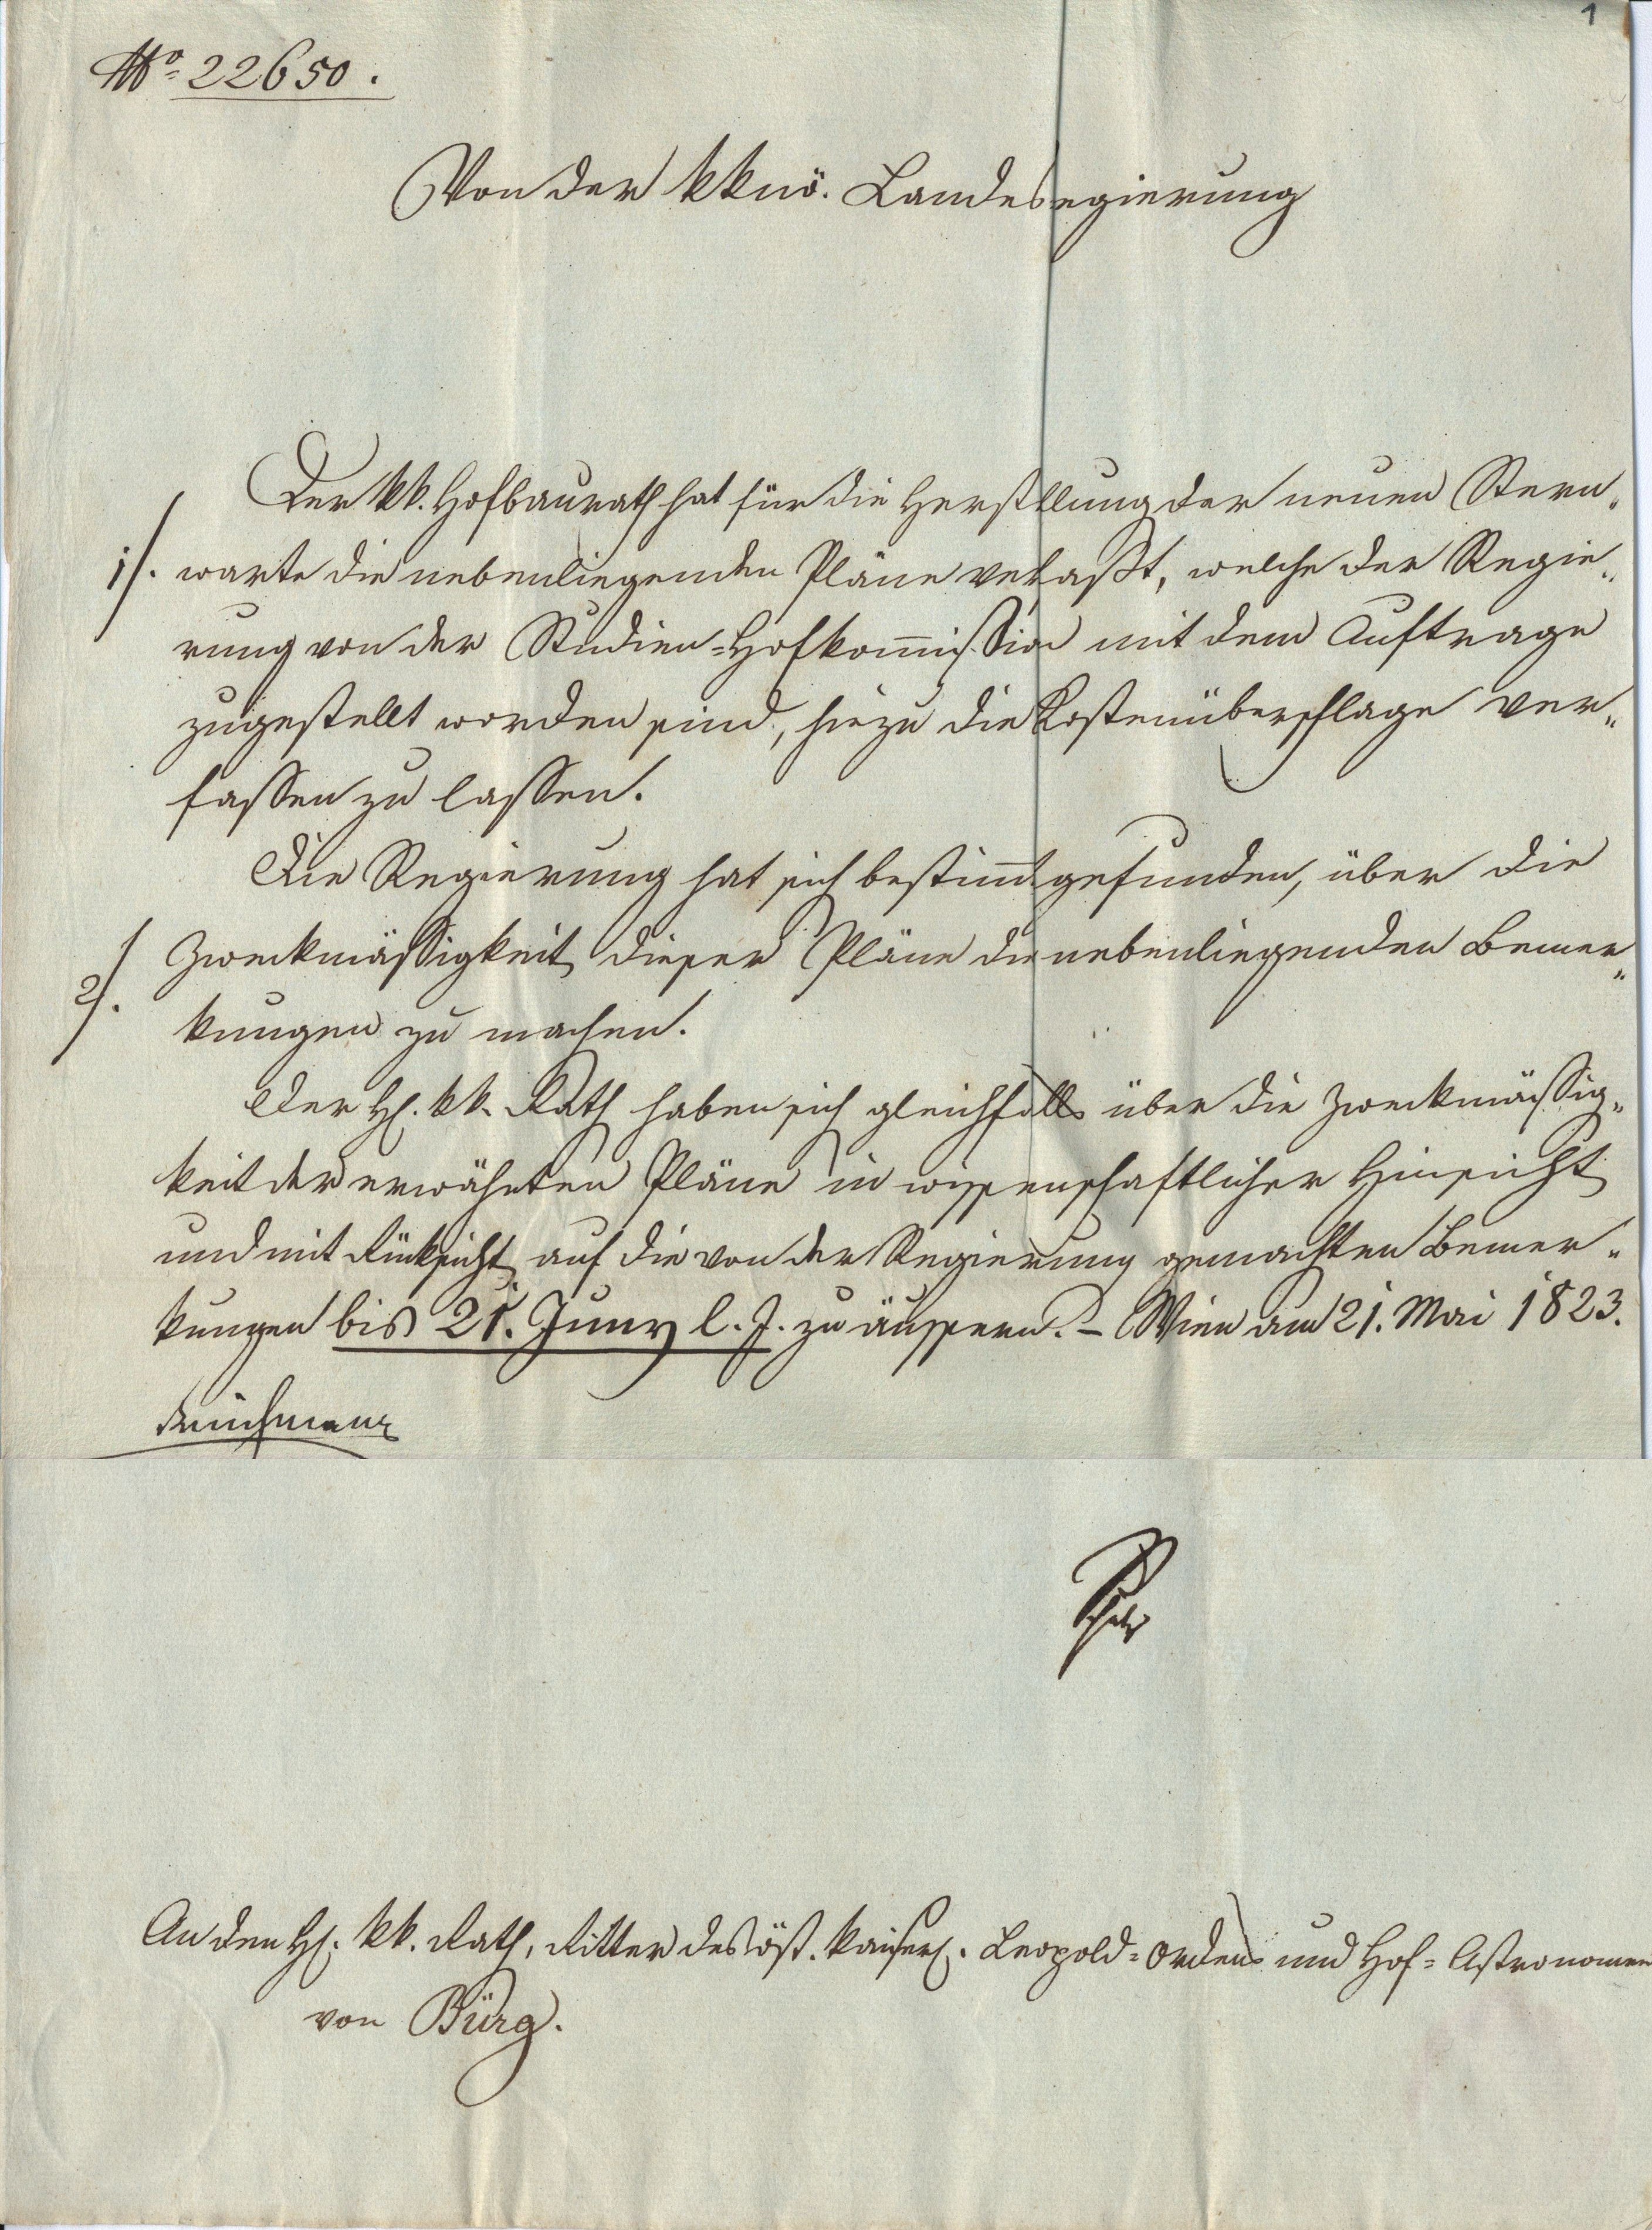 1
No 22650.
Von der k k nö. Landesregierung
Der kk. Hofbaurath hat für die Herstellung der neuen Stern-
1/. warte die nebenliegenden Pläne verfaßt, welche der Regie-
rung von der Studien-Hofkom̅ission mit dem Auftrage
zugestellt worden sind, hiezu die Kostenüberschläge ver-
fassen zu lassen.
Die Regierung hat sich bestim̅t gefunden, über die
2/. Zweckmässigkeit dieser Pläne die nebenliegenden Bemer-
kungen zu machen.
Der H. kk. Rath haben sich gleichfalls über die Zweckmässig-
keit der erwähnten Pläne in wissenschaftlicher Hinsicht
und mit Rücksicht auf die von der Regierung gemachten Bemer-
kungen bis 21. Juny l. J. zu äussern. – Wien am 21. Mai 1823.
An den H. kk. Rath, Ritter des öst. kaiserl. Leopold-Ordens und Hof-Astronomen
von Bürg.